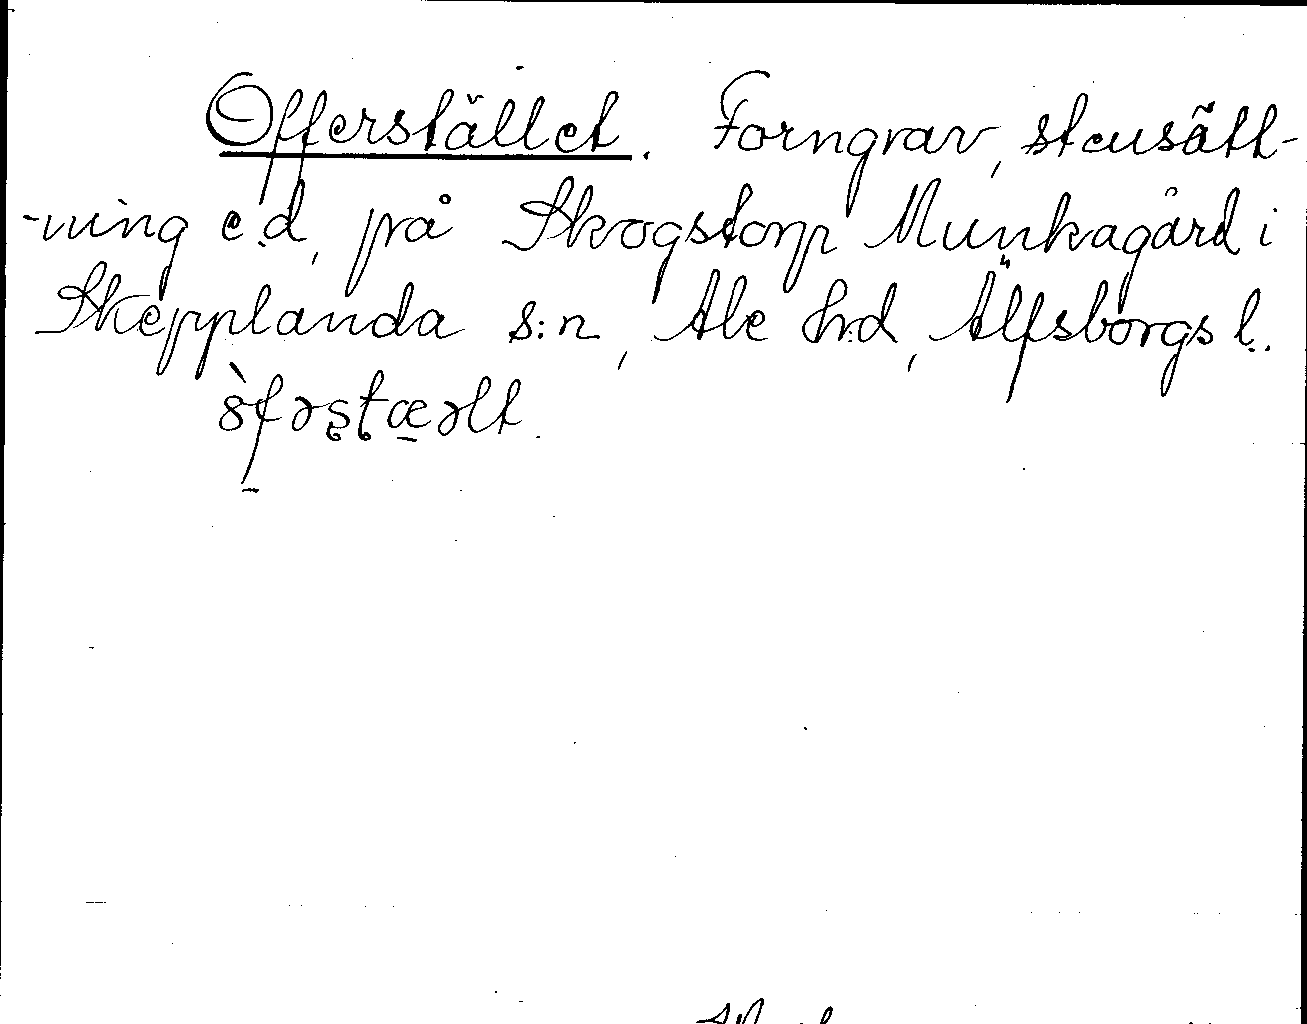 Offerstället. Forngrav, stensätt-
-ning e.d, på Skogstorp Munkagård i
Skepplanda s:n, Ale h:d, Älfsborgs l.